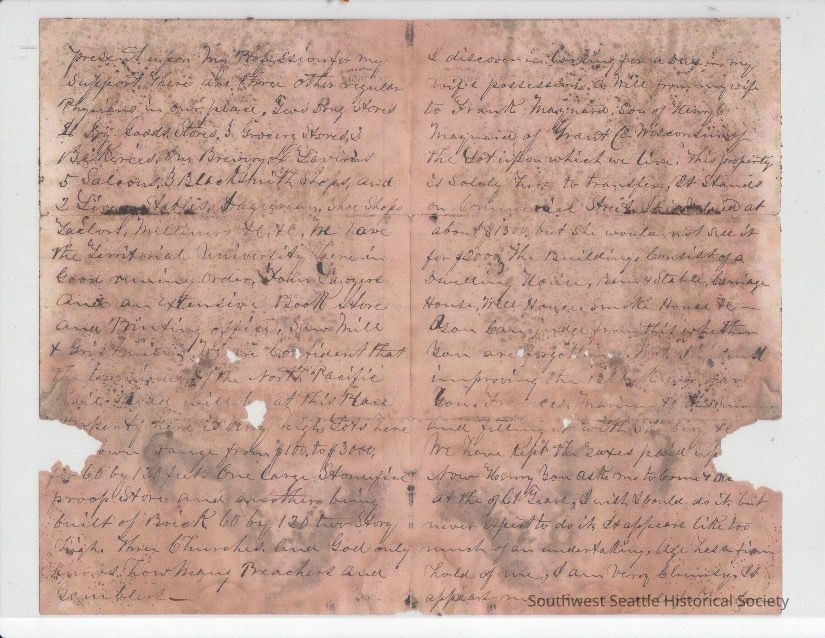 present upon my Profession for my
Support, there are three other regular
Physicians in our place, Two Drug Stores
Dry Goods Stores, 3 Grocery Stores, 3
Bakeries, One Brewery,
5 Saloons, 3 Blacksmith Shops, and
2 Stables, Shoe Shops
Tailors, Milliners &c, &c, We have
the Territorial University here in
Good running Order,
And an Extensive Book Store
And Printing office, Saw Mill
& Grist Mill, We are Confident that
the terminus of the North Pacific
Railroad will be at this Place
property here is very high, Lots here
range from $100, to $3000,
60 by 120 feet One large Stone fire
proof Store and another being
built of Brick 60 by 120 two Story
high. Three Churches and God only
knows how many Preachers and
Gamblers—
I discover in looking for a Deed in my
wife's possession, a Will from my wife
to Frank Maynard, Son of Henry C
Maynard of Grant Co Wisconsin of
the Lot upon which we live, this property
is Solely hers to transfer, It Stands
on Commercial Street It is valued at
about $1500, but she would not sell it
for $2000, The Buildings Consist of a
Dwelling House, Barn & Stable, Carriage
House, Well House, Smoke House &c—
You can judge from this whether
You are forgotten,
improving the
and filling
We have Kept the taxes paid
Now Henry You ask me to Come
at the of Year, I wish I could do it, but
never Expect to do it, It appears like too
much of an undertaking, Age has a firm
hold of me, I am Very Clumsy, It
appears
Southwest Seattle Historical Society